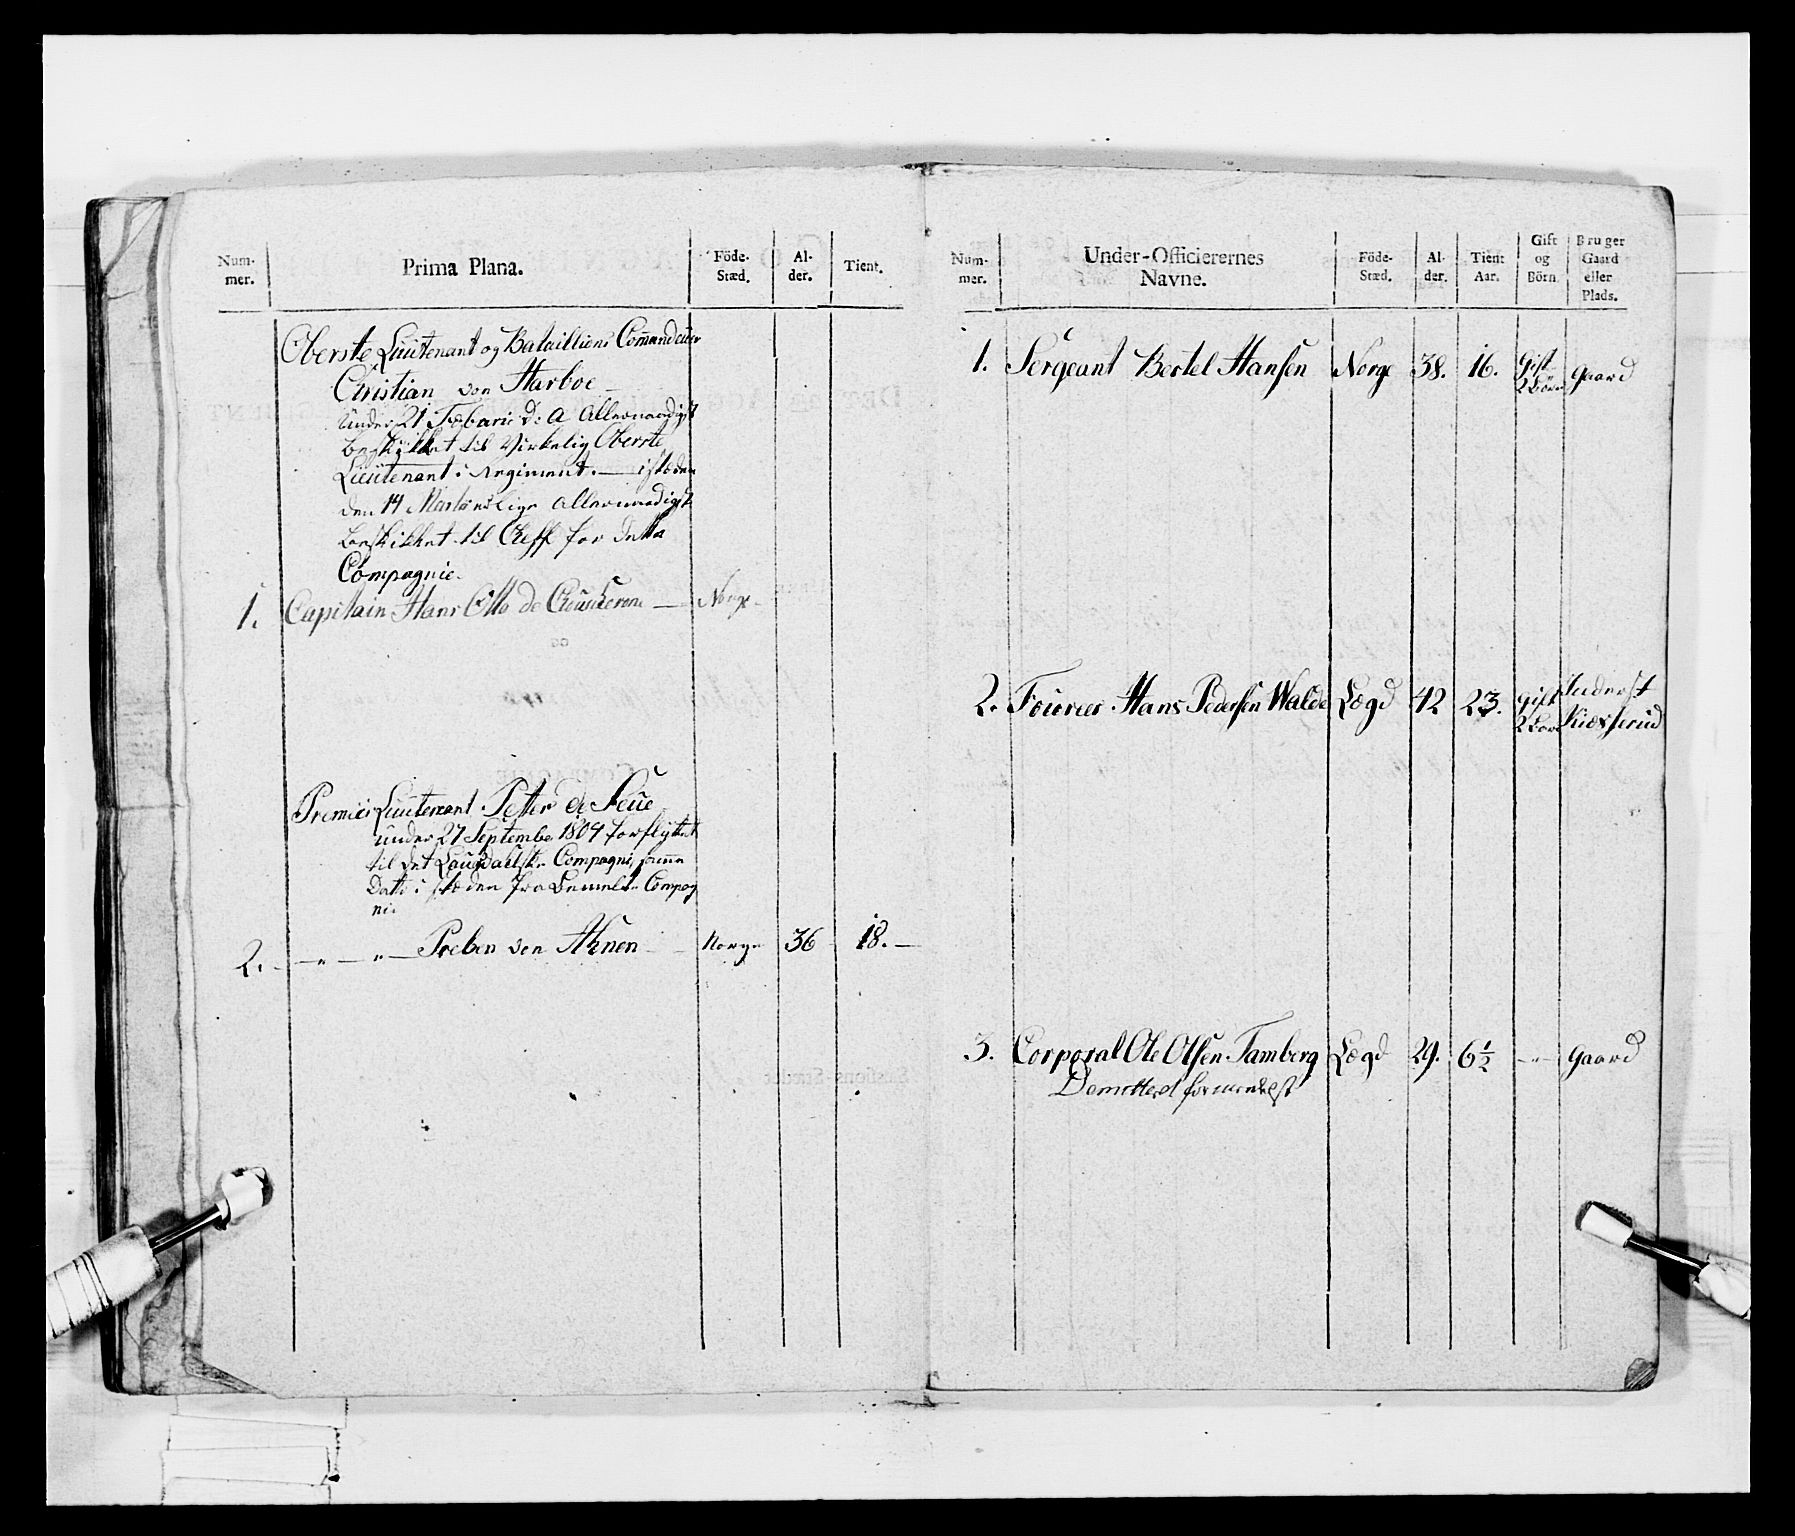 Num-
mer.
Prima Plana.
Föde-
Stæd.
Al-
der.
Tient.
Oberste Lieutenant og Batallions Commandeur
Christian von Harboe
under 21 Febarii d: A Allernaadigst
beskikket til Virkelig Oberste
Lieutenant i Regiment. — istæden
den 14 Martii Allernaadigst
beskikket til Cheff for dette
Compagnie.
1. Capitain Hans Otto de — Norge
Premier Lieutenant Petter de Seue
under 27 September 1804 forflyttet
til det Compagni, samme
Dato i stæden fra Compag
ni.
2. — „ — „ — Preben von Ahnen — Norge 36 18. —
Num-
mer.
Under-Officierernes
Navne.
Föde-
Stæd.
Al-
der.
Tient
Aar.
Gift
og
Börn
Bruger
Gaard
eller
Plads.
1. Sergeant Bertel Hansen Norge 38. 16. Gift Gaard
2 Börn
2. Fourier Hans Pedersen Walde Lægd 42 23. Gift Inderst
2 Börn
3. Corporal Ole Olsen Tamberg Lægd 29. 6½ — „ — Gaard